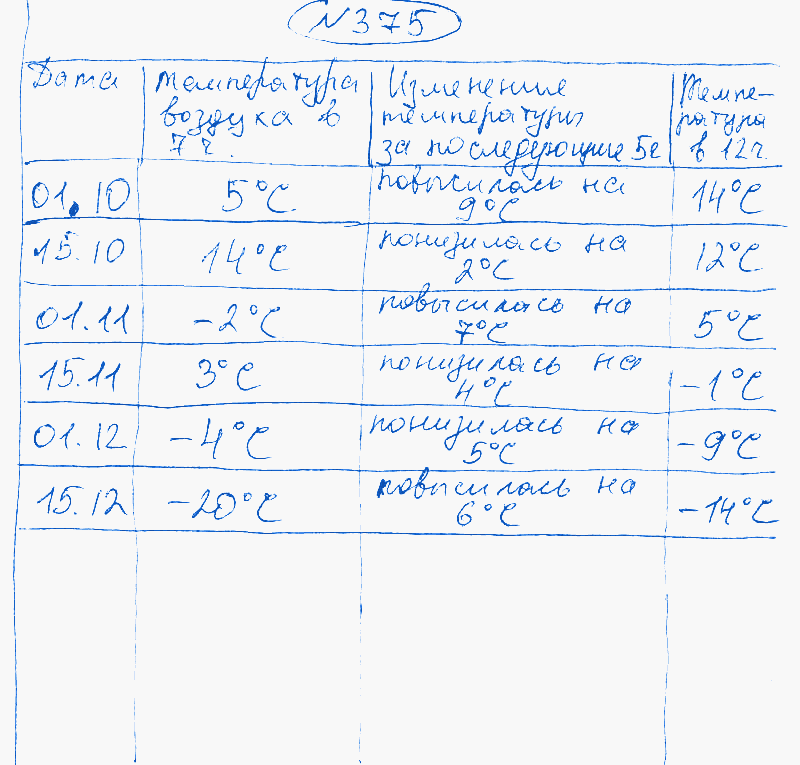 N375
Дата
температура
воздуха в
7 ч.
Изменение
температуры
за последующие 5ч
Темпе-
ратура
в 12ч.
01.10 5°C повысилась на 9°C 14°C
15.10 14°C понизилась на 2°C 12°C
01.11 -2°C повысилась на 7°C 5°C
15.11 3°C понизилась на 4°C -1°C
01.12 -4°C понизилась на 5°C -9°C
15.12 -20°C повысилась на 6°C -14°C